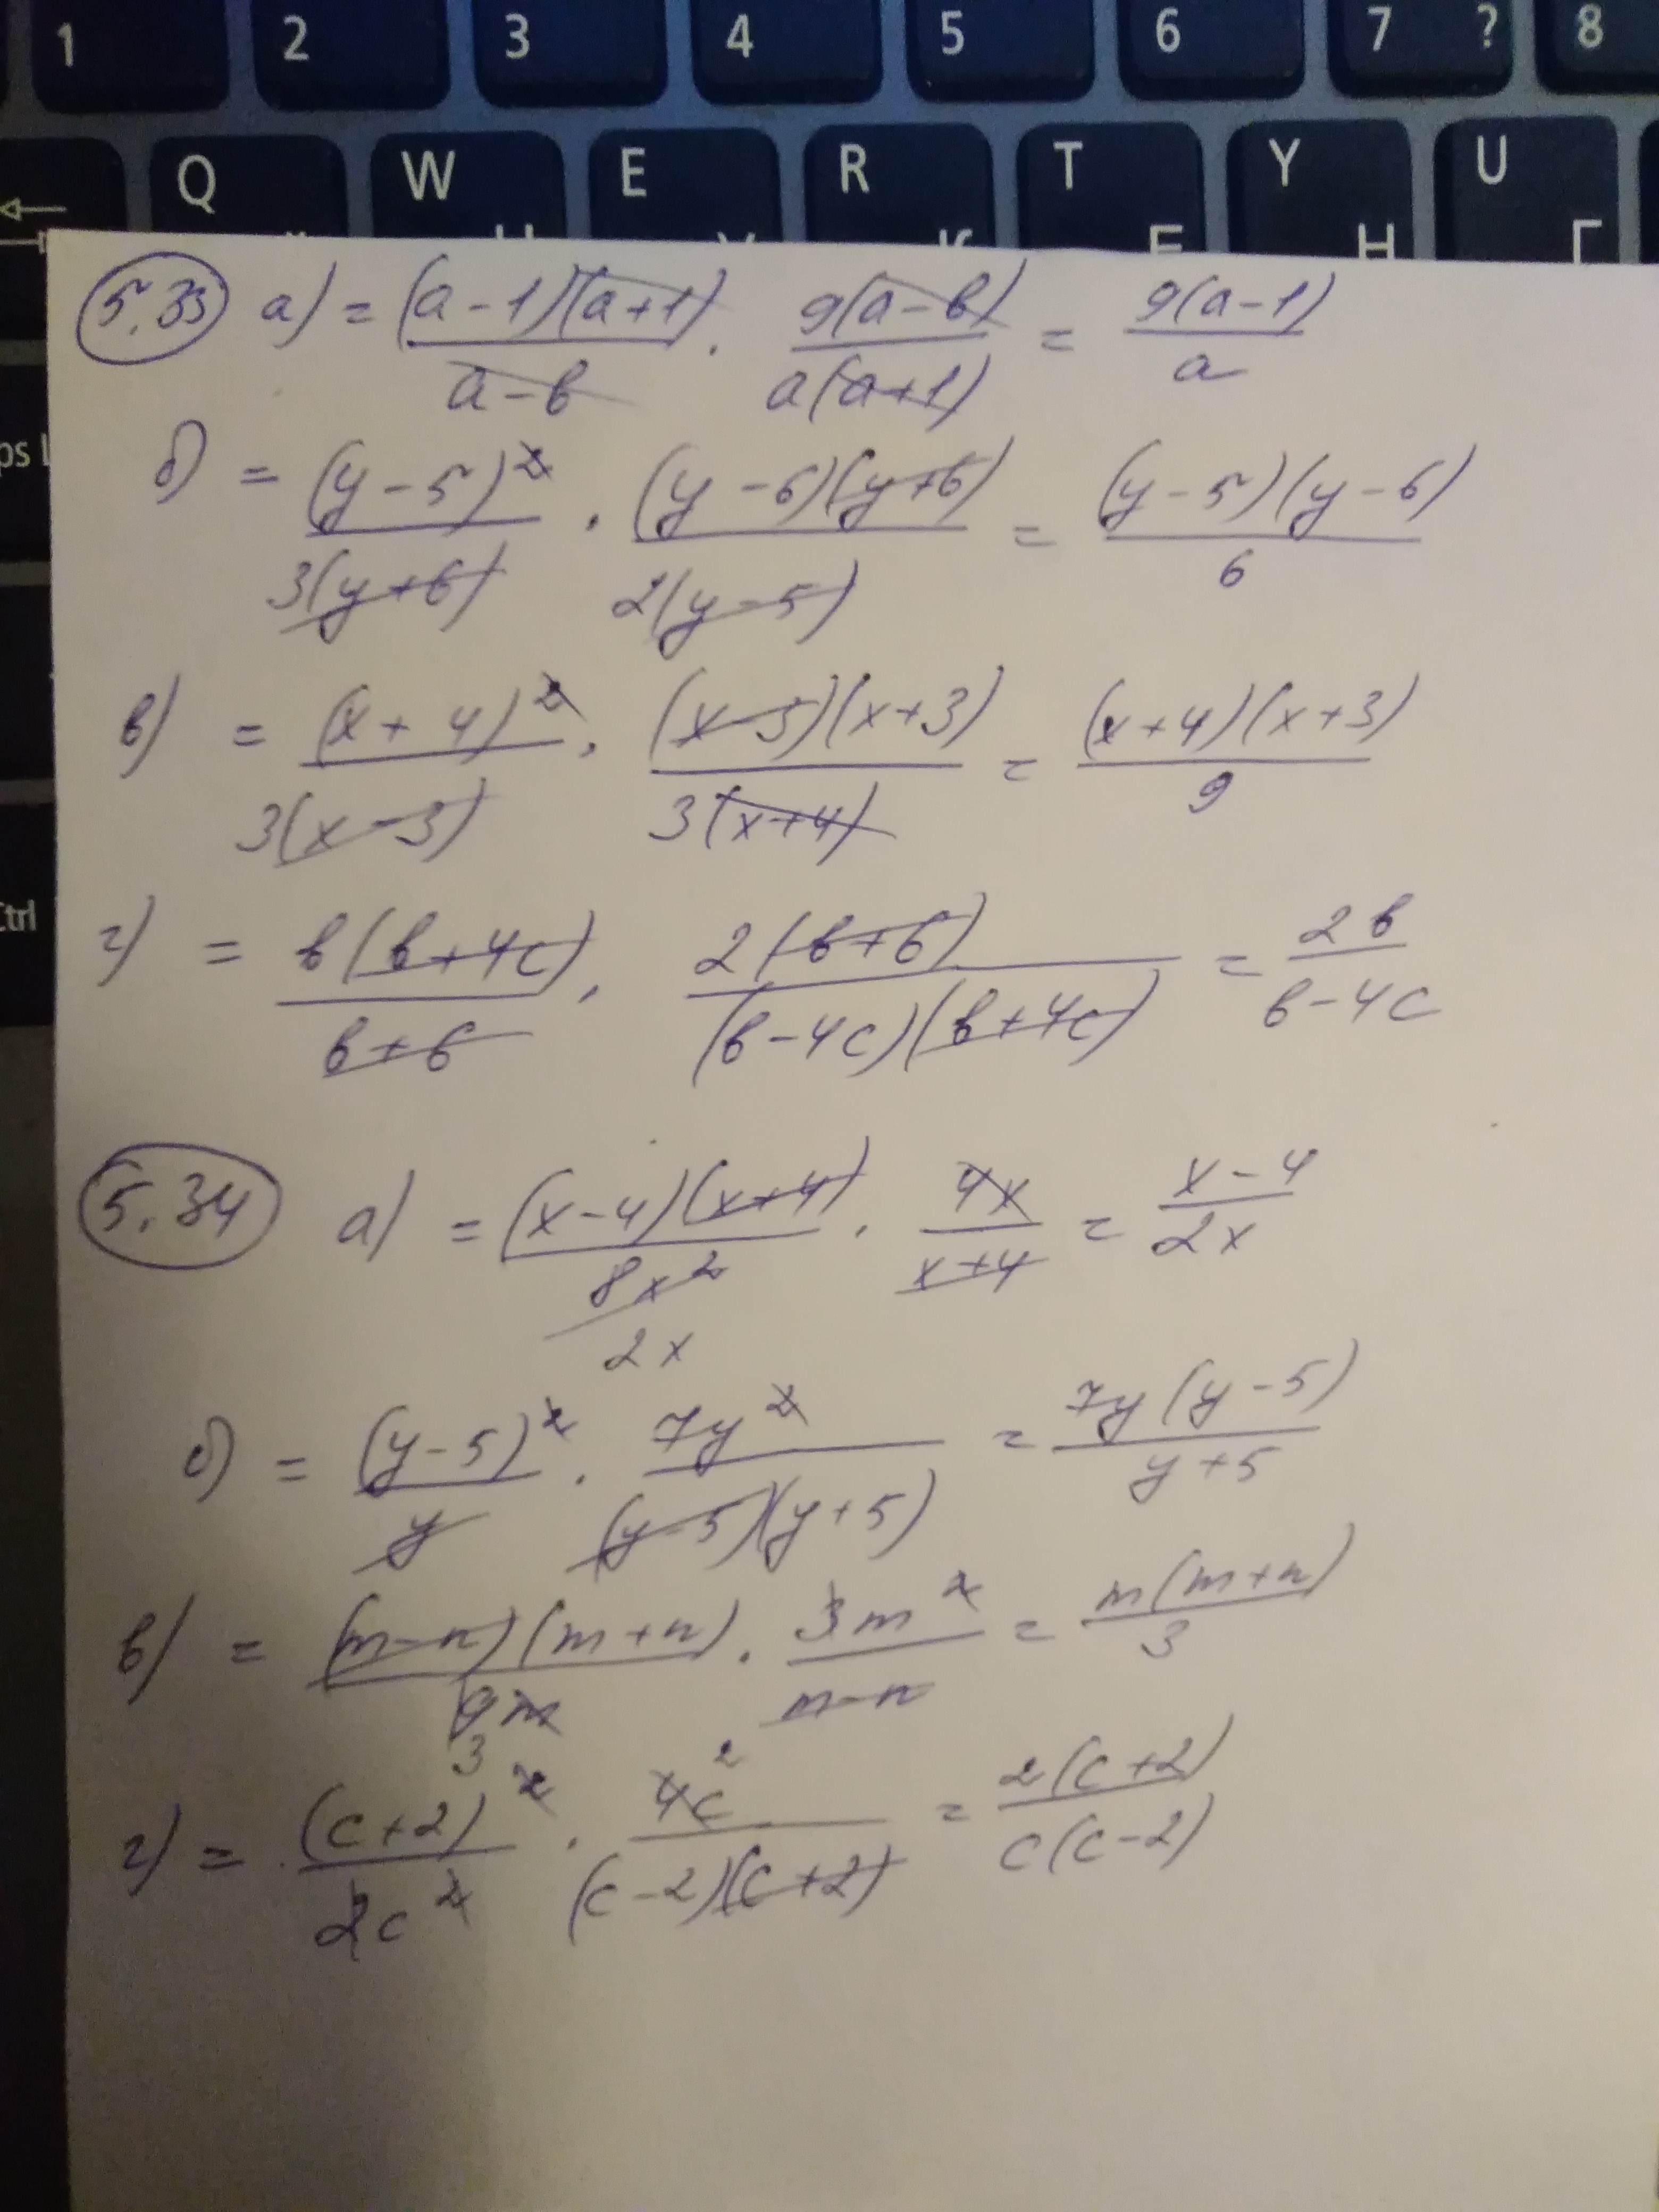 1 2 3 4 5 6 7 ? 8
Q W E R T Y U
Н Г
ps L
Ctrl
5.33 а) = (a-1)(a+1)/(a-b) · 9(a-b)/(a(a+1)) = 9(a-1)/a
б) = (y-5)²/(3(y+6)) · (y-6)(y+6)/(2(y-5)) = (y-5)(y-6)/6
в) = (x+4)²/(3(x-3)) · (x-3)(x+3)/(3(x+4)) = (x+4)(x+3)/9
г) = b(b+4c)/(b+6) · 2(b+6)/((b-4c)(b+4c)) = 2b/(b-4c)
5.34 а) = (x-4)(x+4)/(8x²) · 4x/(x+4) = (x-4)/(2x)
2x
б) = (y-5)²/y · 7y²/((y-5)(y+5)) = 7y(y-5)/(y+5)
в) = (m-n)(m+n)/(9m) · 3m²/(m-n) = m(m+n)/3
3
2
г) = (c+2)²/(2c²) · 4c/((c-2)(c+2)) = 2(c+2)/(c(c-2))